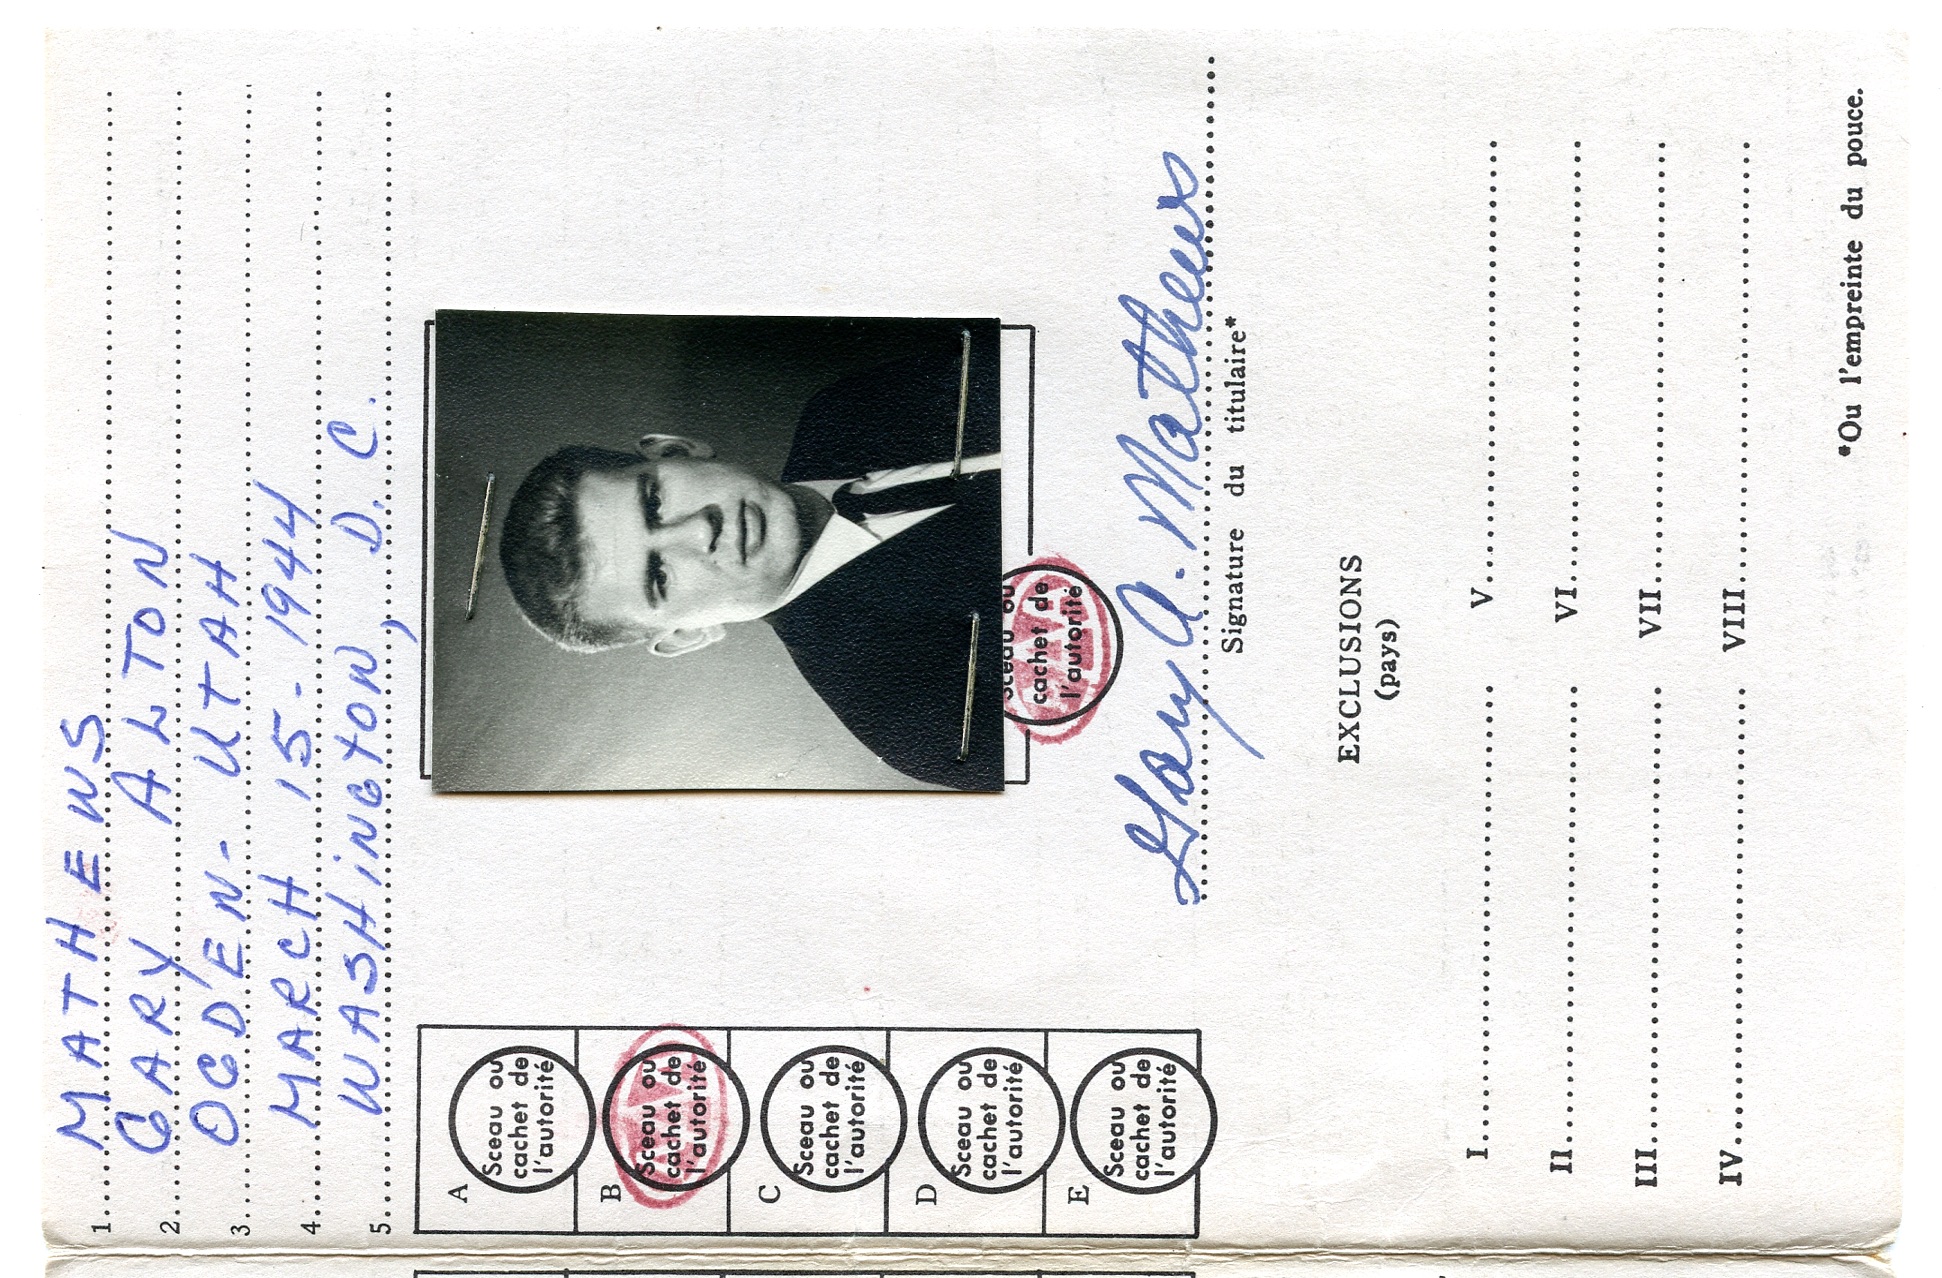 1. MATHEWS
2. GARY ALTON
3. OGDEN - UTAH
4. MARCH 15 - 1944
5. WASHINGTON, D. C.
A
Sceau ou
cachet de
l'autorité
B
Sceau ou
cachet de
l'autorité
C
Sceau ou
cachet de
l'autorité
D
Sceau ou
cachet de
l'autorité
E
Sceau ou
cachet de
l'autorité
Sceau ou
cachet de
l'autorité
Gary A. Mathews
Signature du titulaire*
EXCLUSIONS
(pays)
I. V.
II. VI.
III. VII.
IV. VIII.
*Ou l'empreinte du pouce.